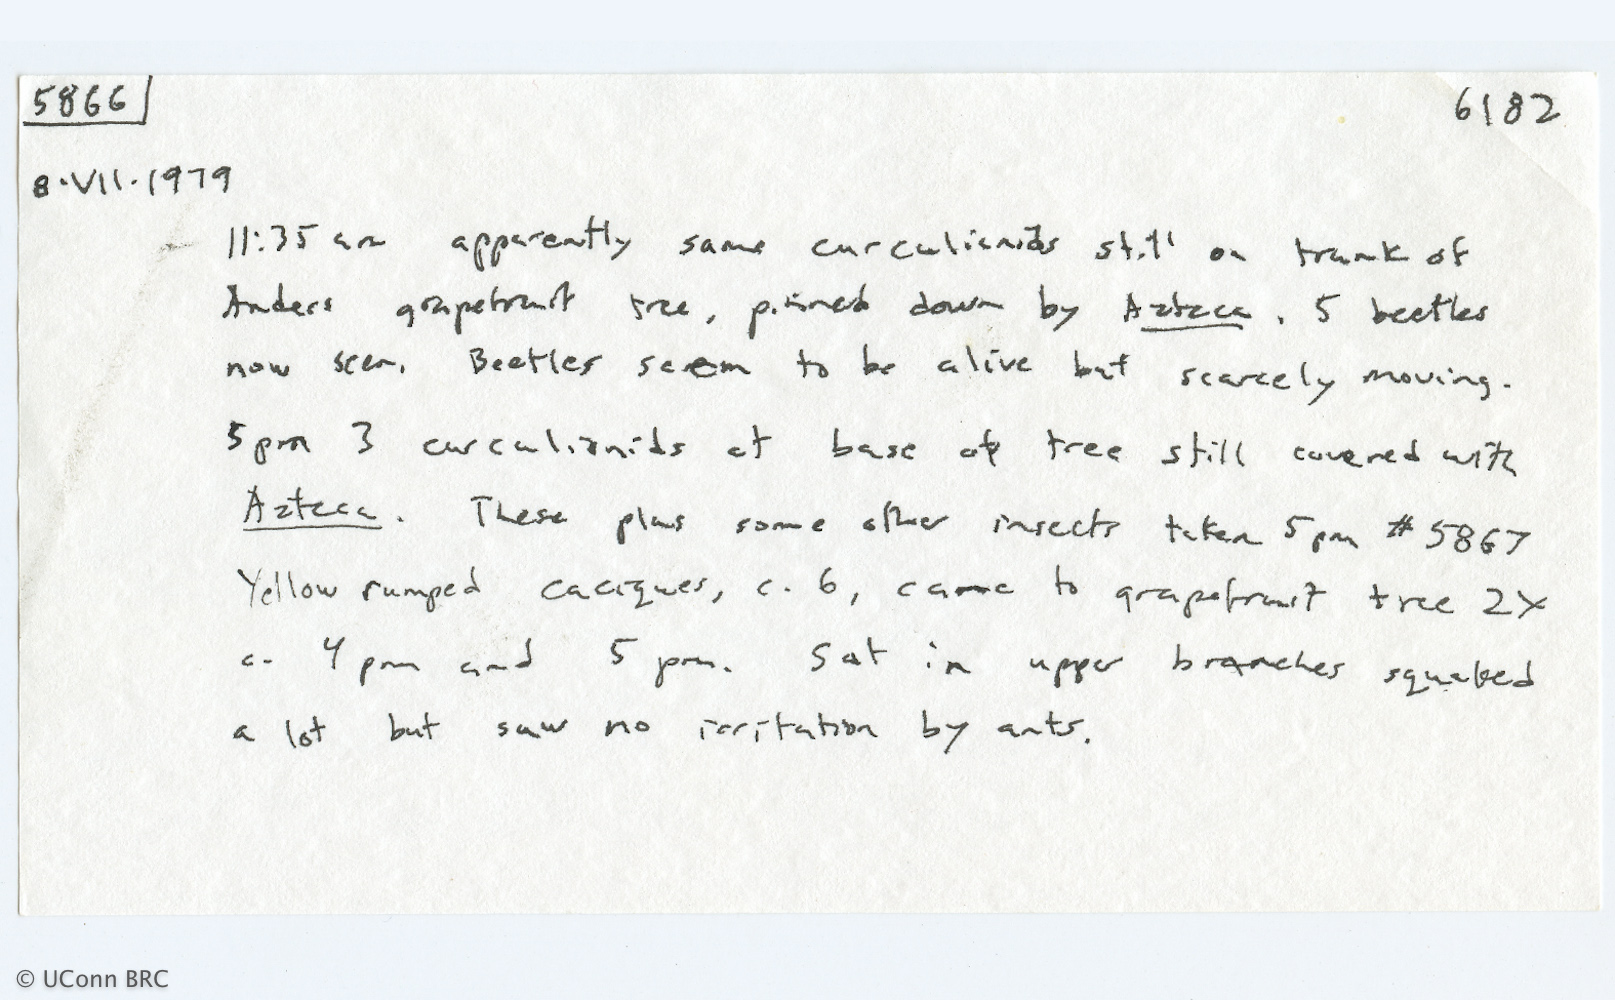 5866 6182
8·VII·1979
11:35 am apparently same curculionids still on trunk of
Anders grapefruit tree, pinned down by Azteca. 5 beetles
now seen. Beetles seem to be alive but scarcely moving.
5pm 3 curculionids at base of tree still covered with
Azteca. These plus some other insects taken 5pm #5867
Yellow rumped caciques, c. 6, came to grapefruit tree 2X
c. 4pm and 5pm. Sat in upper branches squaked
a lot but saw no irritation by ants.
© UConn BRC